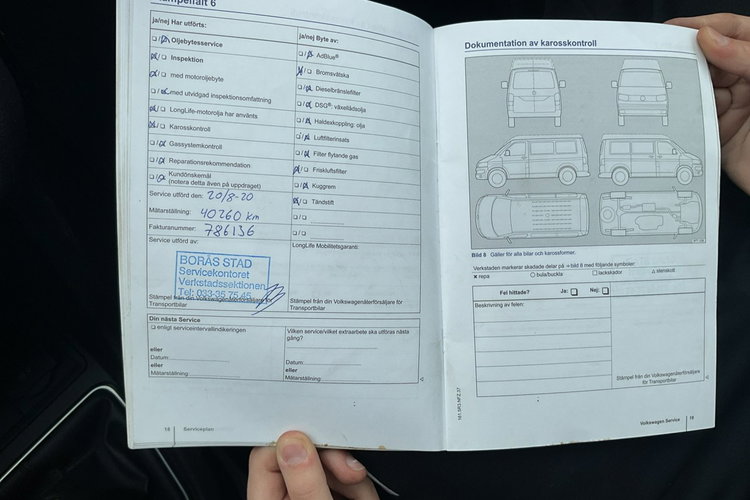 ja/nej Har utförts:
Oljebytesservice
Inspektion
med motoroljebyte
med utvidgad inspektionsomfattning
LongLife-motorolja har använts
Karosskontroll
Gassystemkontroll
Reparationsrekommendation
Kundönskemål
(notera detta även på uppdraget)
Service utförd den: 20/8-20
Mätarställning: 40260 km
Fakturanummer: 786136
Service utförd av:
BORÅS STAD
Servicekontoret
Verkstadssektionen
Tel: 033-35 75 45
Stämpel från din Volkswagenåterförsäljare för
Transportbilar
ja/nej Byte av:
AdBlue®
Bromsvätska
Dieselbränslefilter
DSG®: växellådsolja
Haldexkoppling: olja
Luftfilterinsats
Filter flytande gas
Friskluftsfilter
Kuggrem
Tändstift
LongLife Mobilitetsgaranti:
Stämpel från din Volkswagenåterförsäljare för
Transportbilar
Din nästa Service
enligt serviceintervallindikeringen
eller
Datum:
eller
Mätarställning:
Vilken service/vilket extraarbete ska utföras nästa
gång?
Datum:
eller
Mätarställning:
18 Serviceplan
Dokumentation av karosskontroll
Bild 8 Gäller för alla bilar och karossformer.
Verkstaden markerar skadade delar på ⇒ bild 8 med följande symboler:
× repa ○ bula/buckla □ lackskador △ stenskott
Fel hittade? Ja: Nej:
Beskrivning av felen:
Stämpel från din Volkswagenåterförsäljare
för Transportbilar
161.5R3.NFZ.37
Volkswagen Service 19